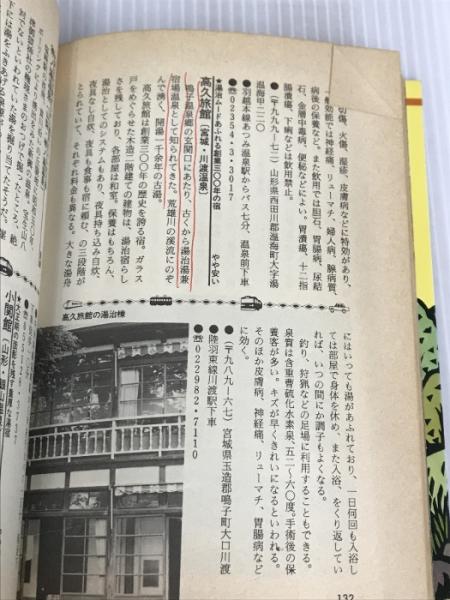 切傷、火傷、湿疹、皮膚病などに特効があり、
効能では神経痛、リューマチ、婦人病、脈病質、
病後の保養など。また飲用では胆石、胃腸病、尿結
石、金属中毒病、便秘などによい。胃潰瘍、十二指
腸潰瘍、下痢などは飲用禁止。
●(〒九九九―七二)山形県西田川郡温海町大字湯
温海甲二二〇
●羽越本線あつみ温泉駅からバス七分、温泉前下車
●☎02354・3・3017
★湯治ムードあふれる創業三〇〇年の宿
高久旅館(宮城・川渡温泉) やや安い
鳴子温泉郷の玄関口にあたり、古くから湯治湯兼
宿場温泉として知られてきた。荒雄川の渓流にのぞ
んで湧く、開湯一千余年の古湯。
高久旅館は創業三〇〇年の歴史を誇る宿。ガラス
戸をめぐらせた木造二階建ての建物は、湯治宿らし
さを残しており、各部屋は和室。保養はもちろん、
湯治としてのシステムもあり、夜具持ち込み自炊、
夜具なし自炊、夜具も食事も宿に頼む、の三段階が
とられていて、それぞれ料金も異なる。大きな湯舟
にはいつても湯があふれており、一日何回も入浴し
ては部屋で身体を休め、また入浴、をくり返してい
れば、いつの間にか調子もよくなる。
釣り、狩猟などの足場に利用することもできる。
泉質は含重曹硫化水素泉、五二~六〇度。手術後の保
養客が多い。キズが早くきれいになるといわれる。
そのほか皮膚病、神経痛、リューマチ、胃腸病など
に効く。
●(〒九八九―六七)宮城県玉造郡鳴子町大口川渡
●陸羽東線川渡駅下車
●☎022982・7110
高久旅館の湯治棟
小関館(山形・銀山温泉)
132